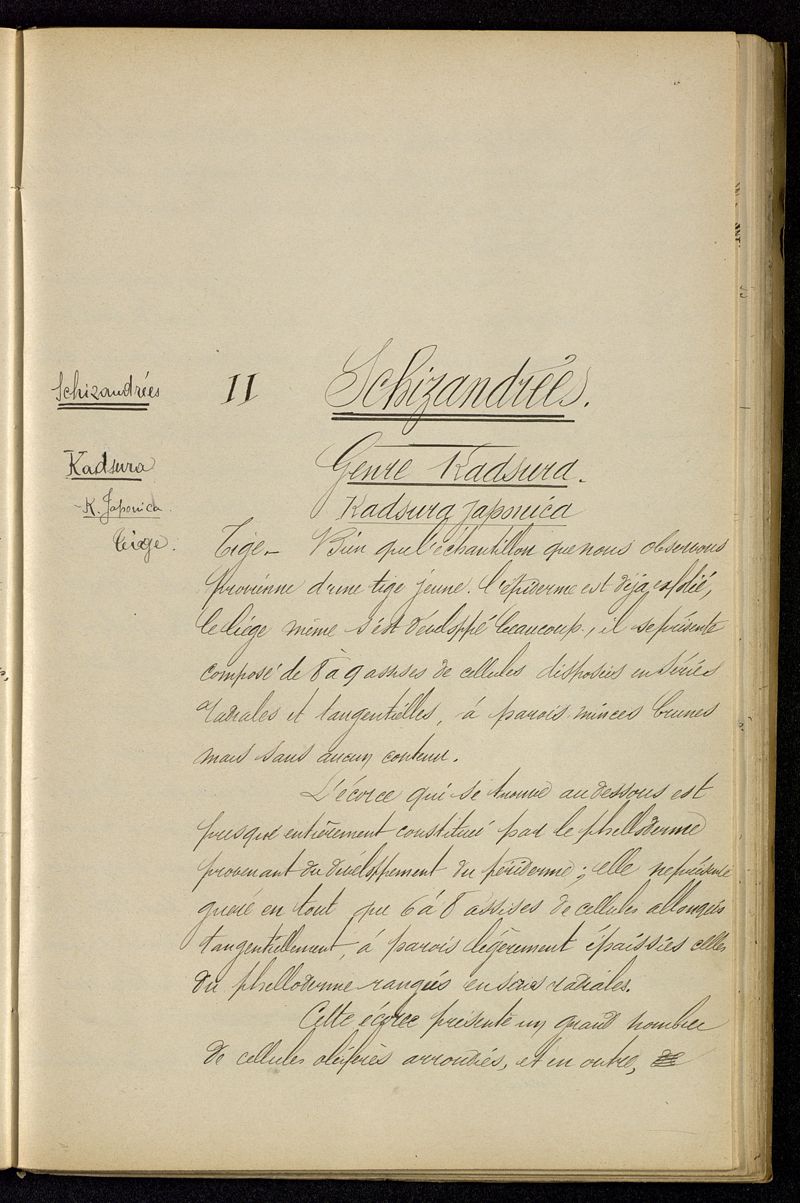 Schizandrées
II Schizandrées.
Kadsura
Genre Kadsura.
K. Japonica
Kadsura japonica
Tige.
Tige.- Bien que l'échantillon que nous observons
provienne d'une tige jeune. l'épiderme est déjà exfolié,
le liége même s'est développé beaucoup, il se présente
composé de 8 à 9 assises de cellules disposées en séries
radiales et tangentielles, à parois minces brunes
mais sans aucun contenu.
L'écorce qui se trouve au dessous est
presque entièrement constitué par le phelloderme
provenant du développement du périderme; elle ne présente
guère en tout que 6 à 8 assises de cellules allongées
tangentiellement, à parois légèrement épaissies celles
du phelloderme rangées en séries radiales.
Cette écorce présente un grand nombre
de cellules oléifères arrondies, et en outre, de